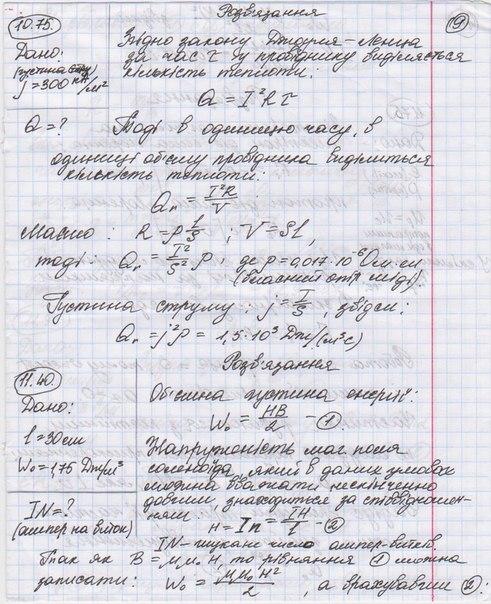 10.75.
Розв'язання
9
Дано:
(густина струму)
j = 300 кА/м²
Згідно закону Джоуля – Ленца
за час τ у провіднику виділяється
кількість теплоти:
Q = I²Rτ
Q = ?
Тоді в одиницю часу, в
одиниці об'єму провідника виділиться
кількість теплоти:
Qп = I²R/V
Маємо : R = ρ l/S ; V = Sl,
тоді: Qп = I²/S² ρ ; де ρ = 0,017·10⁻⁶ Ом·м
(власний опір міді).
Густина струму : j = I/S , звідси:
Qп = j²ρ = 1,5·10³ Дж/(м³с)
Розв'язання
11.40.
Дано:
l = 30 см
W₀ = 1,75 Дж/м³
IN = ?
(ампер на виток)
Об'ємна густина енергії:
W₀ = HB/2 – (1)
Напруженість маг. поля
соленоїда, який в даних умовах
можна вважати нескінченно
довгим, знаходиться за співвідношен-
ням:
H = In = IH/l – (2)
IN – шукане число ампер-витків.
Так як B = μμ₀H, то рівняння (1) можна
записати: W₀ = μμ₀H²/2 , а врахувавши (2):